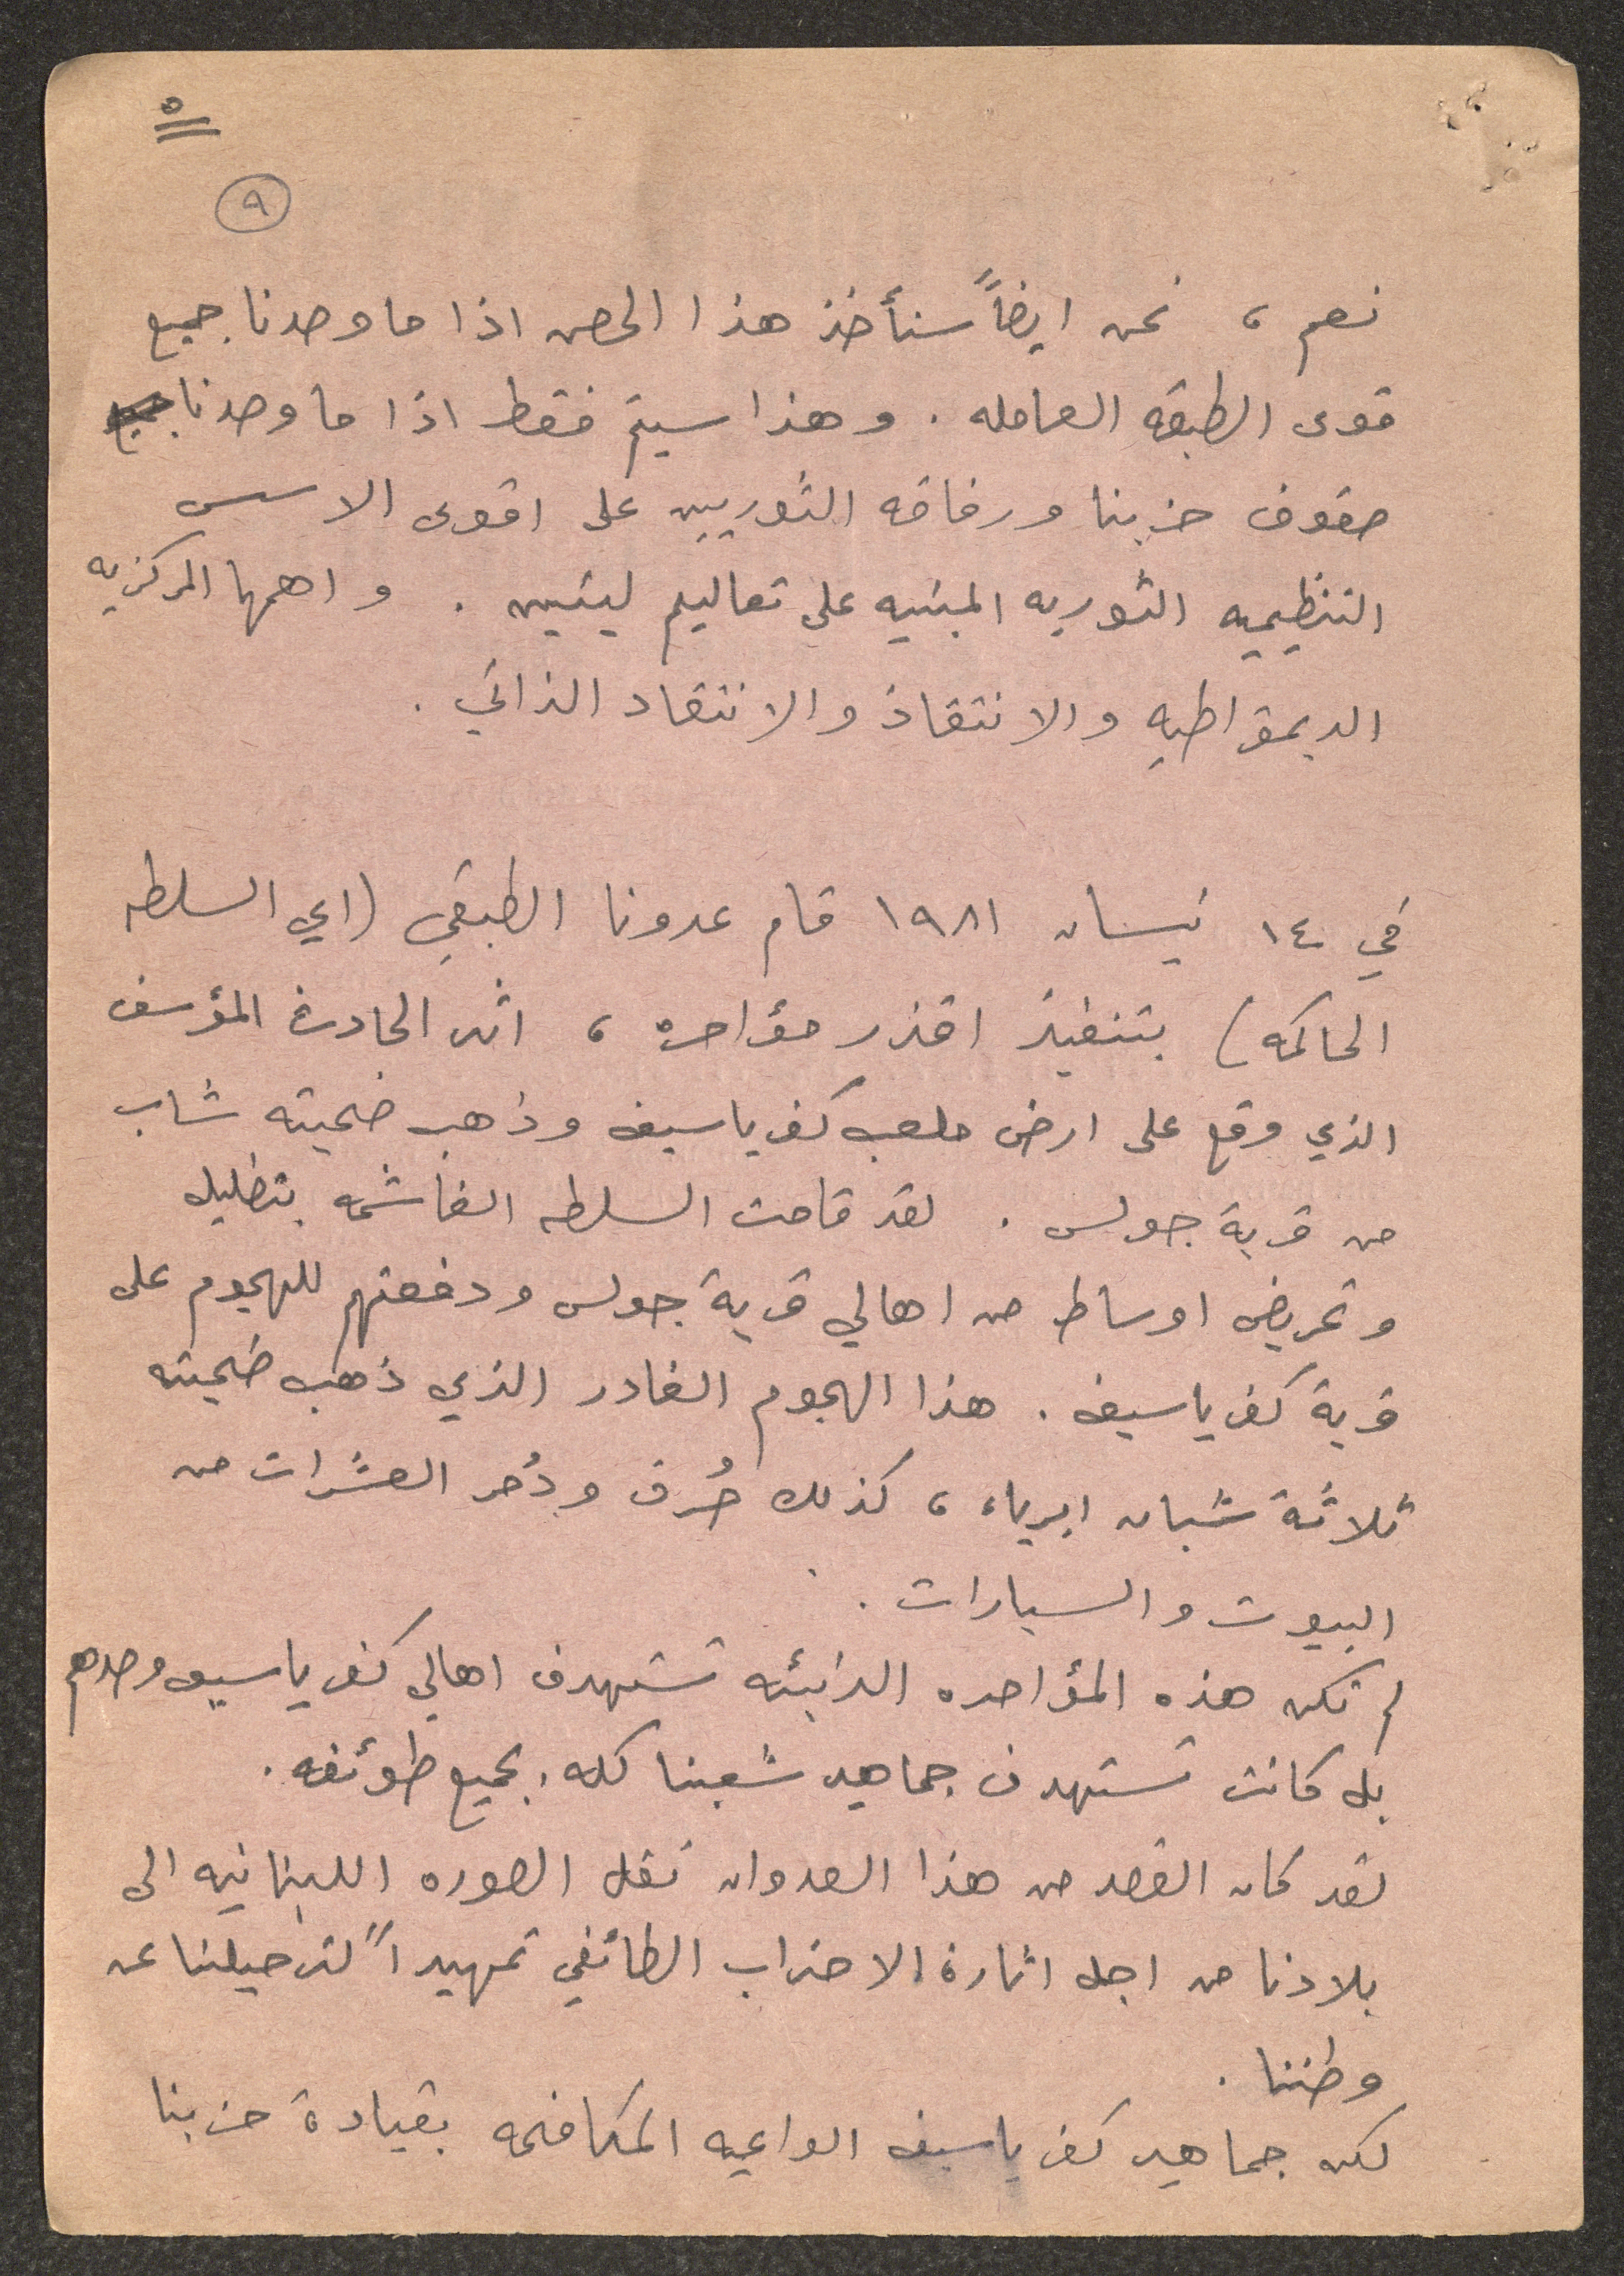 ٥
٩
نعم ، نحن ايضاً سنأخذ هذا الحصن اذا ما وحدنا جميع
قوى الطبقه العامله . وهذا سيتم فقط اذا ما وحدنا
صفوف حزبنا ورفاقه الثوريين على اقوى الاسس
التنظيميه الثوريه المبنيه على تعاليم لينين . واهمها المركزيه
الديمقراطيه والانتقاد والانتقاد الذاتي .
في ١٤ نيسان ١٩٨١ قام عدونا الطبقي (اي السلطه
الحاكمه) بتنفيذ اقذر مؤامره ، اثر الحادث المؤسف
الذي وقع على ارض ملعب كفر ياسيف وذهب ضحيته شاب
من قرية جولس . لقد قامت السلطه الغاشمه بتظليل
وتحريض اوساط من اهالي قرية جولس ودفعتهم للهجوم على
قرية كفر ياسيف . هذا الهجوم الغادر الذي ذهب ضحيته
ثلاثة شبان ابرياء ، كذلك حُرق ودُمر العشرات من
البيوت والسيارات .
لم تكن هذه المؤامره الدنيئه تستهدف اهالي كفر ياسيف وحدهم
بل كانت تستهدف جماهير شعبنا كله . بجميع طوئفه .
لقد كان القصد من هذا العدوان نقل الصوره اللبنانيه الى
بلادنا من اجل اثارة الاحتراب الطائفي تمهيداً لترحيلنا عن
وطننا .
لكن جماهير كفر ياسيف الواعيه المكافحه بقيادة حزبنا